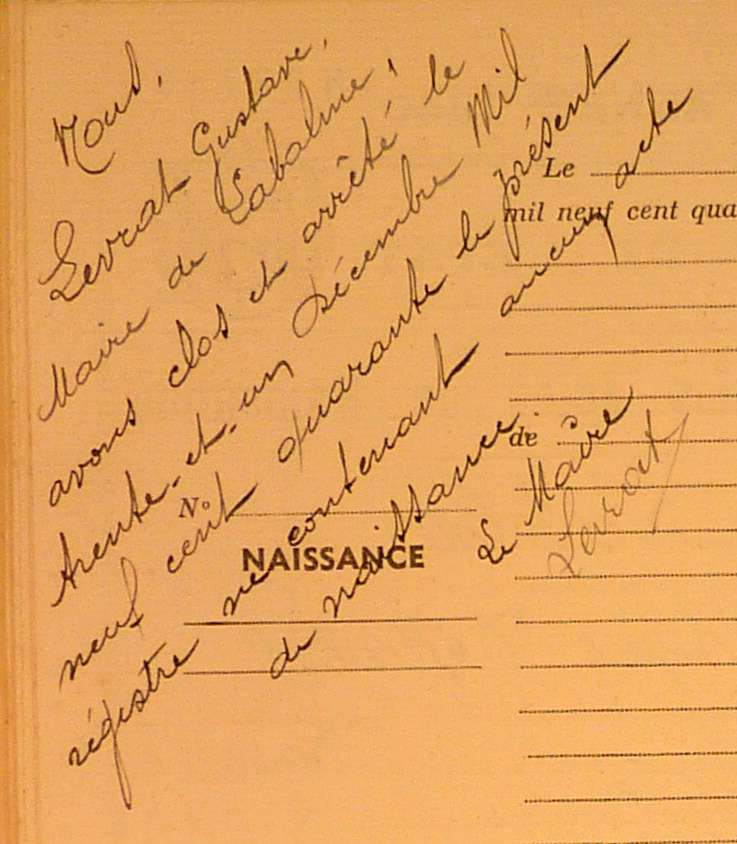 Nous,
Levrat Gustave,
Maire de Labalme,
avons clos et arrêté le
trente-et-un Décembre Mil
neuf cent quarante le présent
régistre ne contenant aucun acte
de naissance.
Le Maîre
Levrat
Le
mil neuf cent qua
de
N°
NAISSANCE